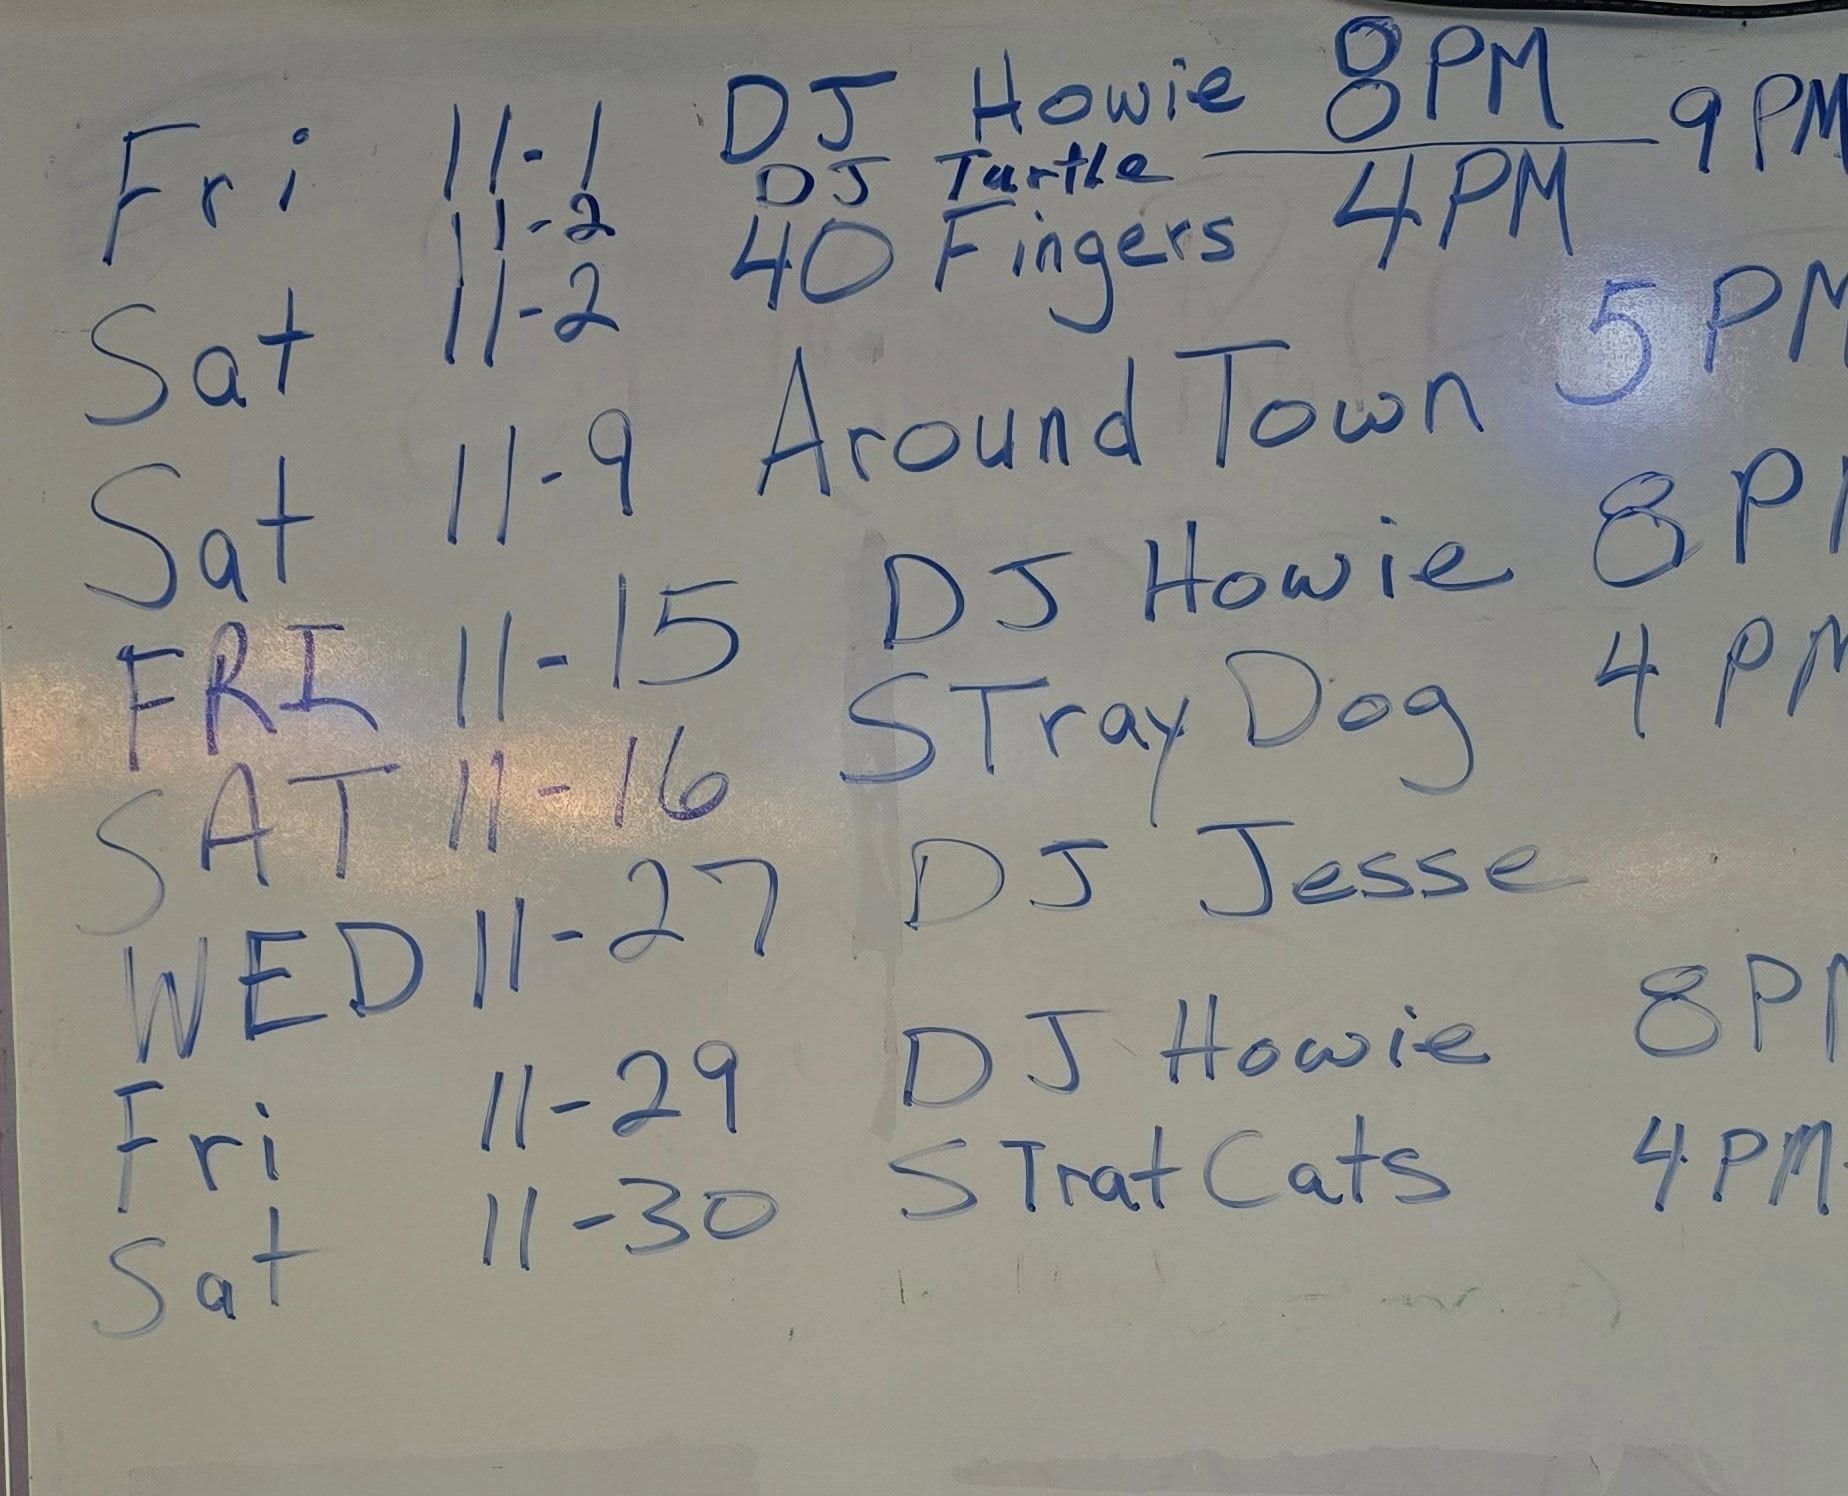 Fri 11-1 DJ Howie 8PM
11-2 DJ Turtle 9PM
Sat 11-2 40 Fingers 4PM
Sat 11-9 Around Town 5PM
FRI 11-15 DJ Howie 8P
SAT 11-16 STray Dog 4 PM
WED 11-27 DJ Jesse
Fri 11-29 DJ Howie 8P
Sat 11-30 STrat Cats 4PM